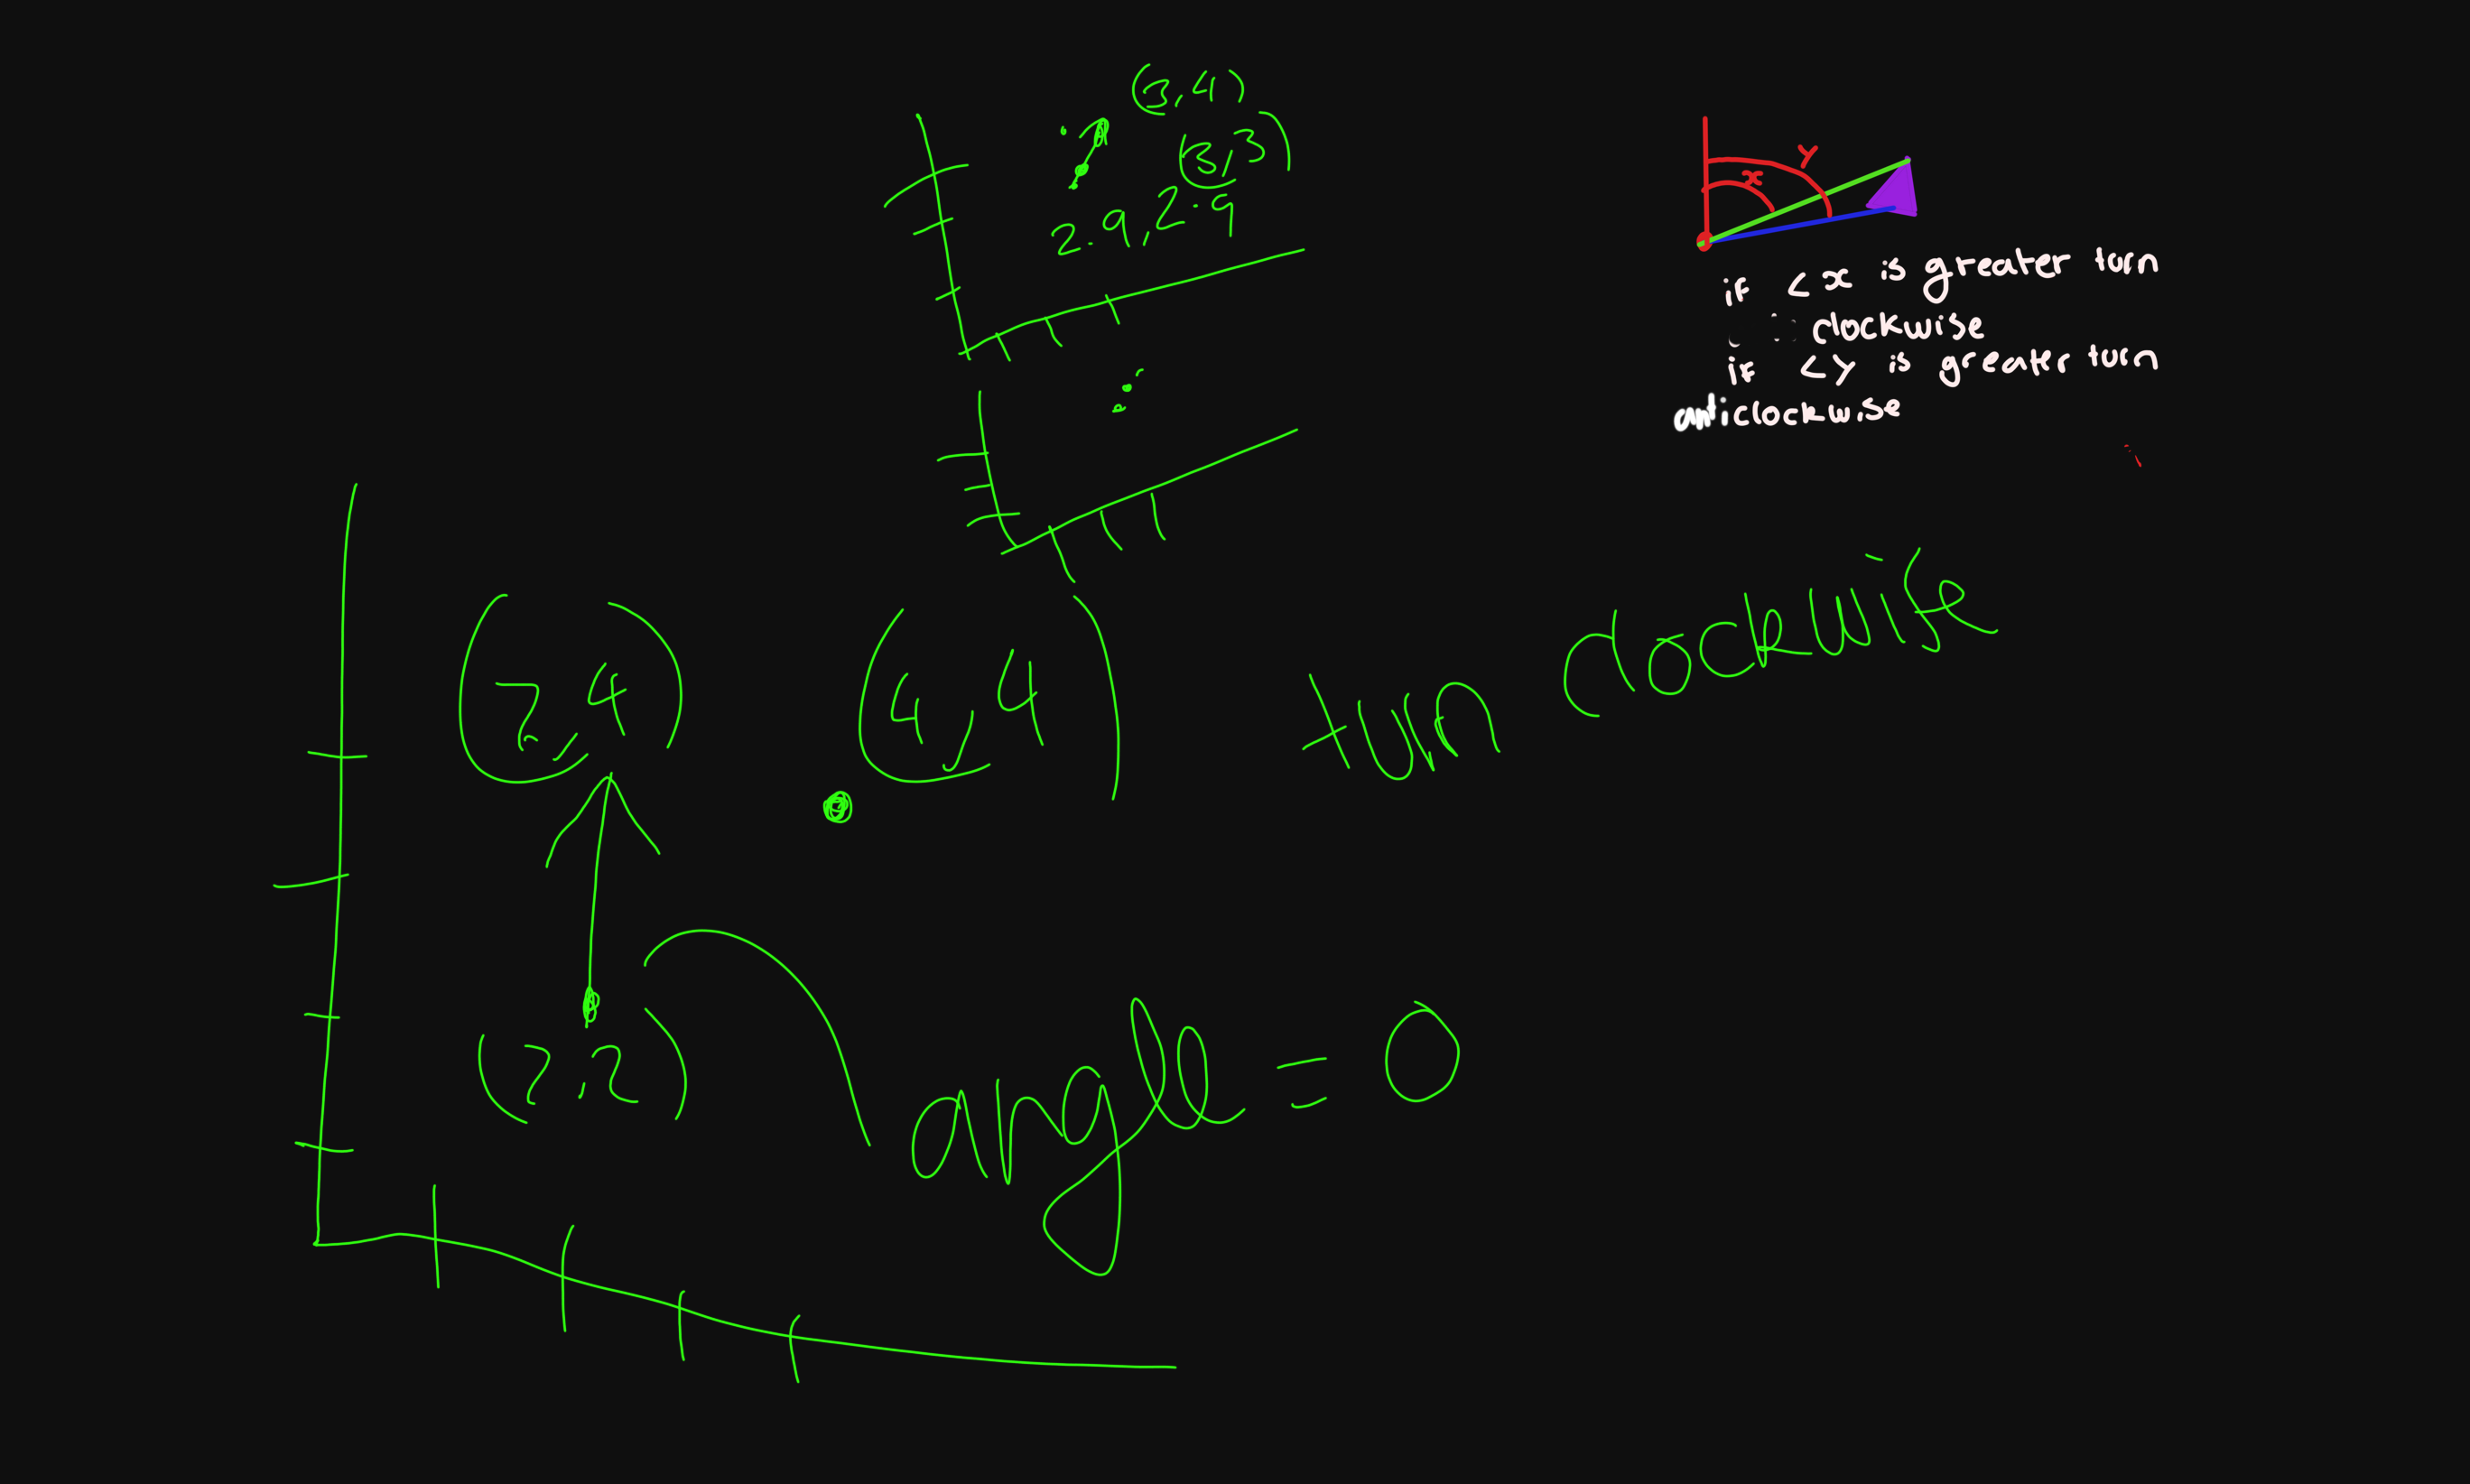 (3,4)
(3,3)
2.9,2.9
Y
x
if <x is greater turn
clockwise
if <y is greater turn
anticlockwise
(2,4)
(4,4)
turn clockwise
(2,2)
angle = 0